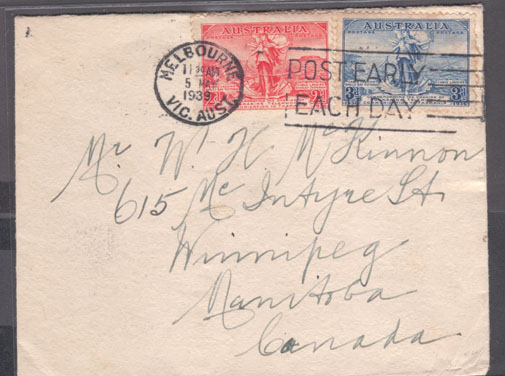 AUSTRALIA
AUSTRALIA
POSTAGE
POSTAGE
2d
3d
3d
MELBOURNE
5
1939
VIC. AUST.
POST EARLY
EACH DAY
Mr W. H. McKinnon
615 McIntyre St.
Winnipeg
Manitoba
Canada